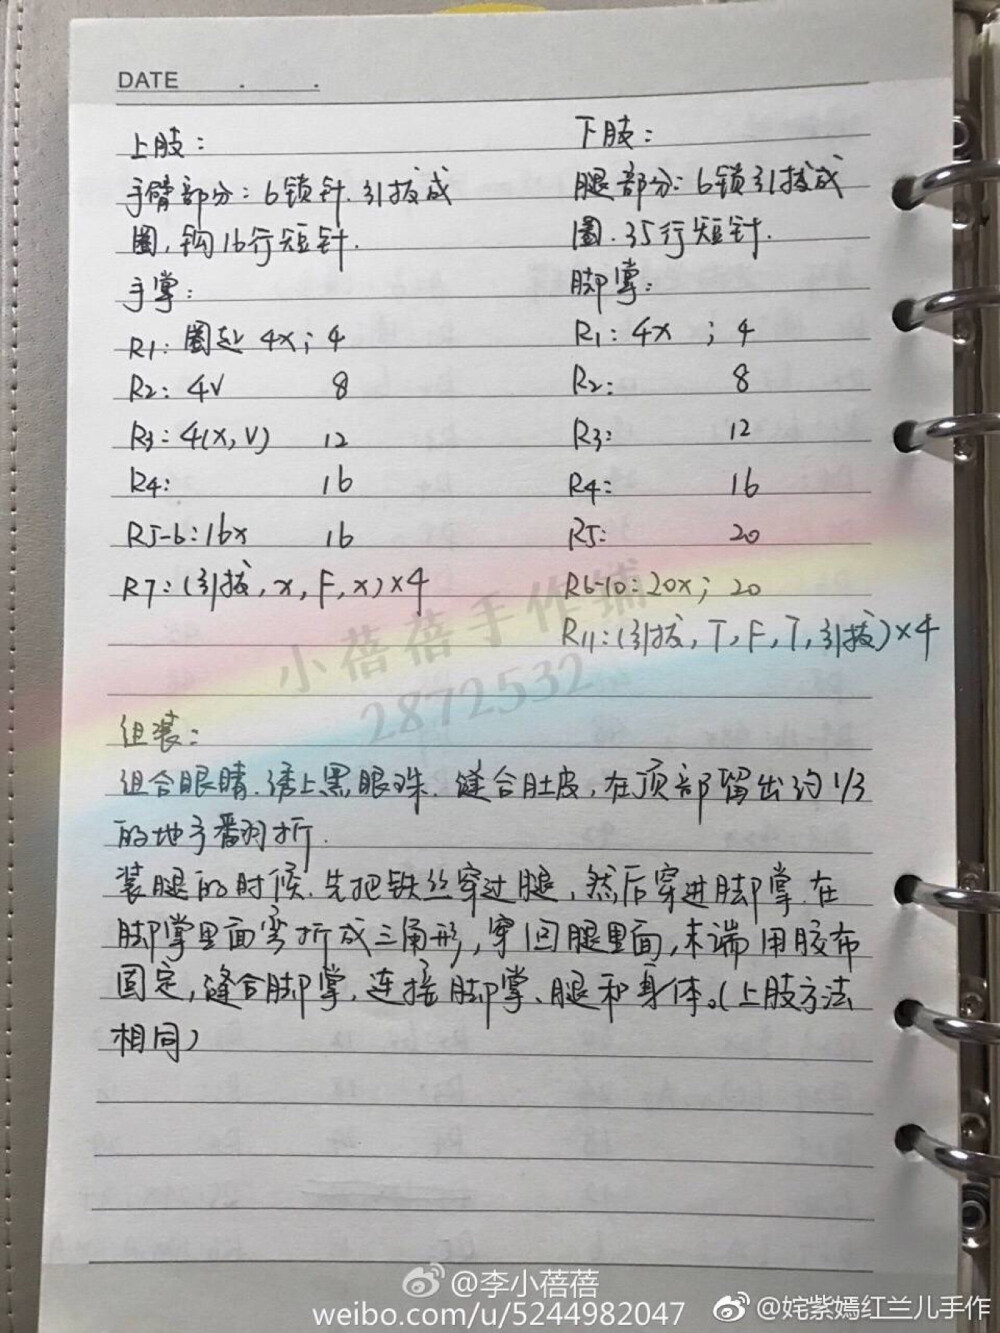 DATE . .
上肢：
手臂部分：6锁针.引拔成
圈,钩16行短针.
手掌：
R1：圈起 4x；4
R2：4V 8
R3：4(x,V) 12
R4： 16
R5-6：16x 16
R7：(引拔,x,F,x)×4
下肢：
腿部分：6锁引拔成
圈.35行短针.
脚掌：
R1：4x ；4
R2： 8
R3： 12
R4： 16
R5： 20
R6-10：20x；20
R11：(引拔,T,F,T,引拔)×4
组装：
组合眼睛.绣上黑眼珠.缝合肚皮,在顶部留出约1/3
的地方翻折.
装腿的时候.先把铁丝穿过腿,然后穿进脚掌.在
脚掌里面弯折成三角形,穿回腿里面,末端用胶布
固定,缝合脚掌,连接脚掌、腿和身体。(上肢方法
相同)
小蓓蓓手作铺
2872532
@李小蓓蓓
weibo.com/u/5244982047
@姹紫嫣红兰儿手作